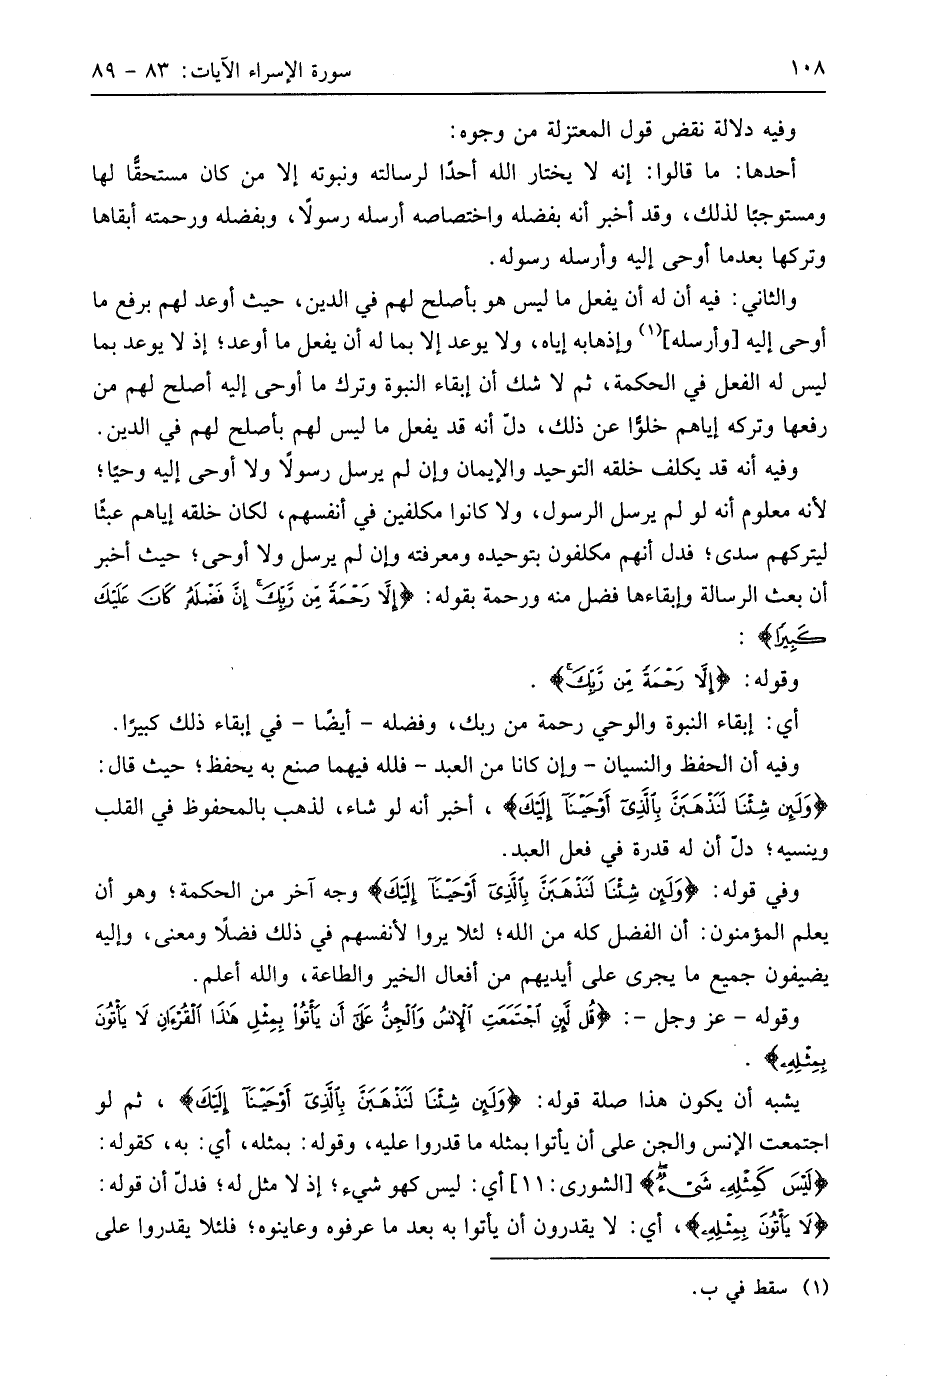 ١٠٨ سورة الإسراء الآيات: ٨٣ - ٨٩
وفيه دلالة نقض قول المعتزلة من وجوه:
أحدها: ما قالوا: إنه لا يختار الله أحدًا لرسالته ونبوته إلا من كان مستحقًّا لها
ومستوجبًا لذلك، وقد أخبر أنه بفضله واختصاصه أرسله رسولًا، وبفضله ورحمته أبقاها
وتركها بعدما أوحى إليه وأرسله رسوله.
والثاني: فيه أن له أن يفعل ما ليس هو بأصلح لهم في الدين، حيث أوعد لهم برفع ما
أوحى إليه [وأرسله](١) وإذهابه إياه، ولا يوعد إلا بما له أن يفعل ما أوعد؛ إذ لا يوعد بما
ليس له الفعل في الحكمة، ثم لا شك أن إبقاء النبوة وترك ما أوحى إليه أصلح لهم من
رفعها وتركه إياهم خلوًا عن ذلك، دلّ أنه قد يفعل ما ليس لهم بأصلح لهم في الدين.
وفيه أنه قد يكلف خلقه التوحيد والإيمان وإن لم يرسل رسولًا ولا أوحى إليه وحيًا؛
لأنه معلوم أنه لو لم يرسل الرسول، ولا كانوا مكلفين في أنفسهم، لكان خلقه إياهم عبثًا
ليتركهم سدى؛ فدل أنهم مكلفون بتوحيده ومعرفته وإن لم يرسل ولا أوحى؛ حيث أخبر
أن بعث الرسالة وإبقاءها فضل منه ورحمة بقوله: ﴿إِلَّا رَحْمَةً مِّن رَّبِّكَۚ إِنَّ فَضْلَهُۥ كَانَ عَلَيْكَ
كَبِيرًا﴾ :
وقوله: ﴿إِلَّا رَحْمَةً مِّن رَّبِّكَۚ﴾ .
أي: إبقاء النبوة والوحي رحمة من ربك، وفضله - أيضًا - في إبقاء ذلك كبيرًا.
وفيه أن الحفظ والنسيان - وإن كانا من العبد - فلله فيهما صنع به يحفظ؛ حيث قال:
﴿وَلَئِن شِئْنَا لَنَذْهَبَنَّ بِٱلَّذِىٓ أَوْحَيْنَآ إِلَيْكَ﴾ ، أخبر أنه لو شاء، لذهب بالمحفوظ في القلب
وينسيه؛ دلّ أن له قدرة في فعل العبد.
وفي قوله: ﴿وَلَئِن شِئْنَا لَنَذْهَبَنَّ بِٱلَّذِىٓ أَوْحَيْنَآ إِلَيْكَ﴾ وجه آخر من الحكمة؛ وهو أن
يعلم المؤمنون: أن الفضل كله من الله؛ لئلا يروا لأنفسهم في ذلك فضلًا ومعنى، وإليه
يضيفون جميع ما يجرى على أيديهم من أفعال الخير والطاعة، والله أعلم.
وقوله - عز وجل -: ﴿قُل لَّئِنِ ٱجْتَمَعَتِ ٱلْإِنسُ وَٱلْجِنُّ عَلَىٰٓ أَن يَأْتُوا۟ بِمِثْلِ هَٰذَا ٱلْقُرْءَانِ لَا يَأْتُونَ
بِمِثْلِهِۦ﴾ .
يشبه أن يكون هذا صلة قوله: ﴿وَلَئِن شِئْنَا لَنَذْهَبَنَّ بِٱلَّذِىٓ أَوْحَيْنَآ إِلَيْكَ﴾ ، ثم لو
اجتمعت الإنس والجن على أن يأتوا بمثله ما قدروا عليه، وقوله: بمثله، أي: به، كقوله:
﴿لَيْسَ كَمِثْلِهِۦ شَىْءٌۖ﴾ [الشورى: ١١] أي: ليس كهو شيء؛ إذ لا مثل له؛ فدلّ أن قوله:
﴿لَا يَأْتُونَ بِمِثْلِهِۦ﴾، أي: لا يقدرون أن يأتوا به بعد ما عرفوه وعاينوه؛ فلئلا يقدروا على
(١) سقط في ب.